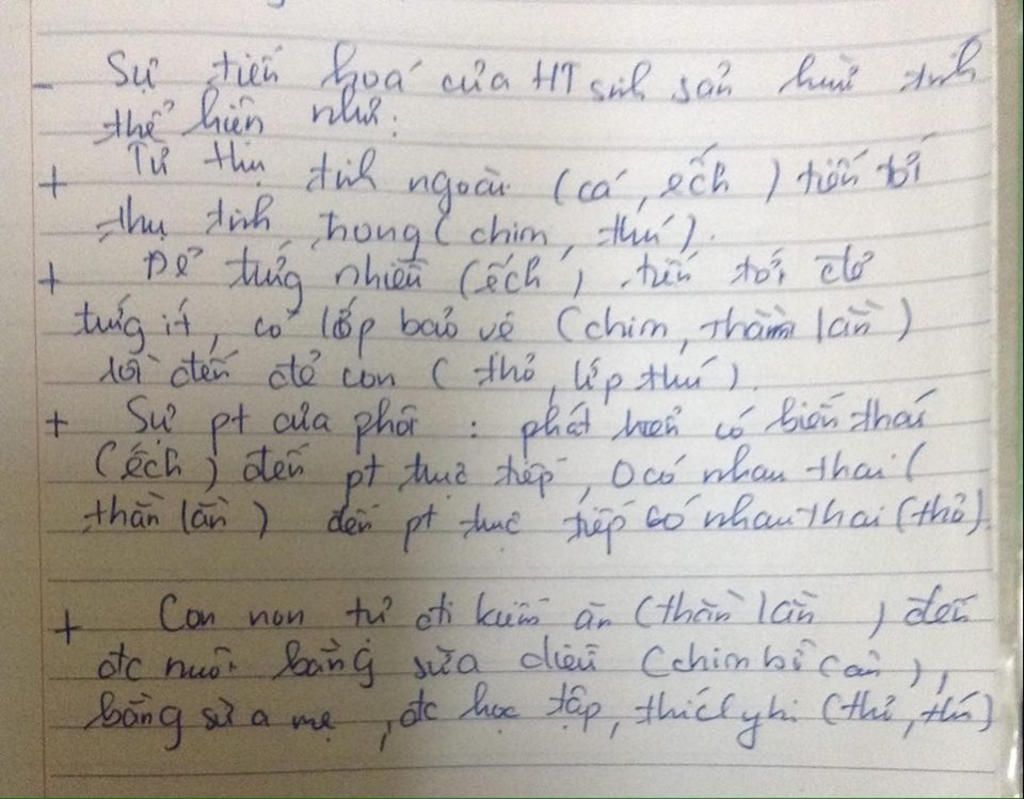 - Sự tiến hoá của HT sinh sản hữu tính
thể hiện như:
+ Từ thụ tinh ngoài (cá, ếch) tiến tới
thụ tinh trong (chim, thú).
+ Đẻ trứng nhiều (ếch), tiến tới đẻ
trứng ít, có lớp bảo vệ (chim, thằn lằn)
rồi đến đẻ con (thỏ, lớp thú).
+ Sự pt của phôi : phát triển có biến thái
(ếch) đến pt trực tiếp, 0 có nhau thai (
thằn lằn) đến pt trực tiếp có nhau thai (thỏ)
+ Con non tự đi kiếm ăn (thằn lằn) đến
đc nuôi bằng sữa diều (chim bồ câu),
bằng sữa mẹ, đc học tập, thích nghi (thỏ, thú)